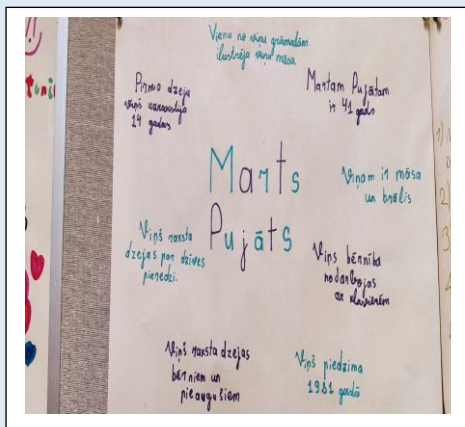 !!
Vienu no viņu grāmatām
ilustrēja viņu māsa
Pirmo dzeju
viņš uzrakstīja
14 gados
Martam Pujātam
ir 41 gads
Marts
Pujāts
Viņam ir māsa
un brālis
Viņš raksta
dzejas par dzīves
pieredzi.
Viņš bērnība
nodarbojas
ar
Viņš raksta dzejas
bērniem un
pieaugušiem
Viņš piedzima
1981 gadā
1)
2)
3)